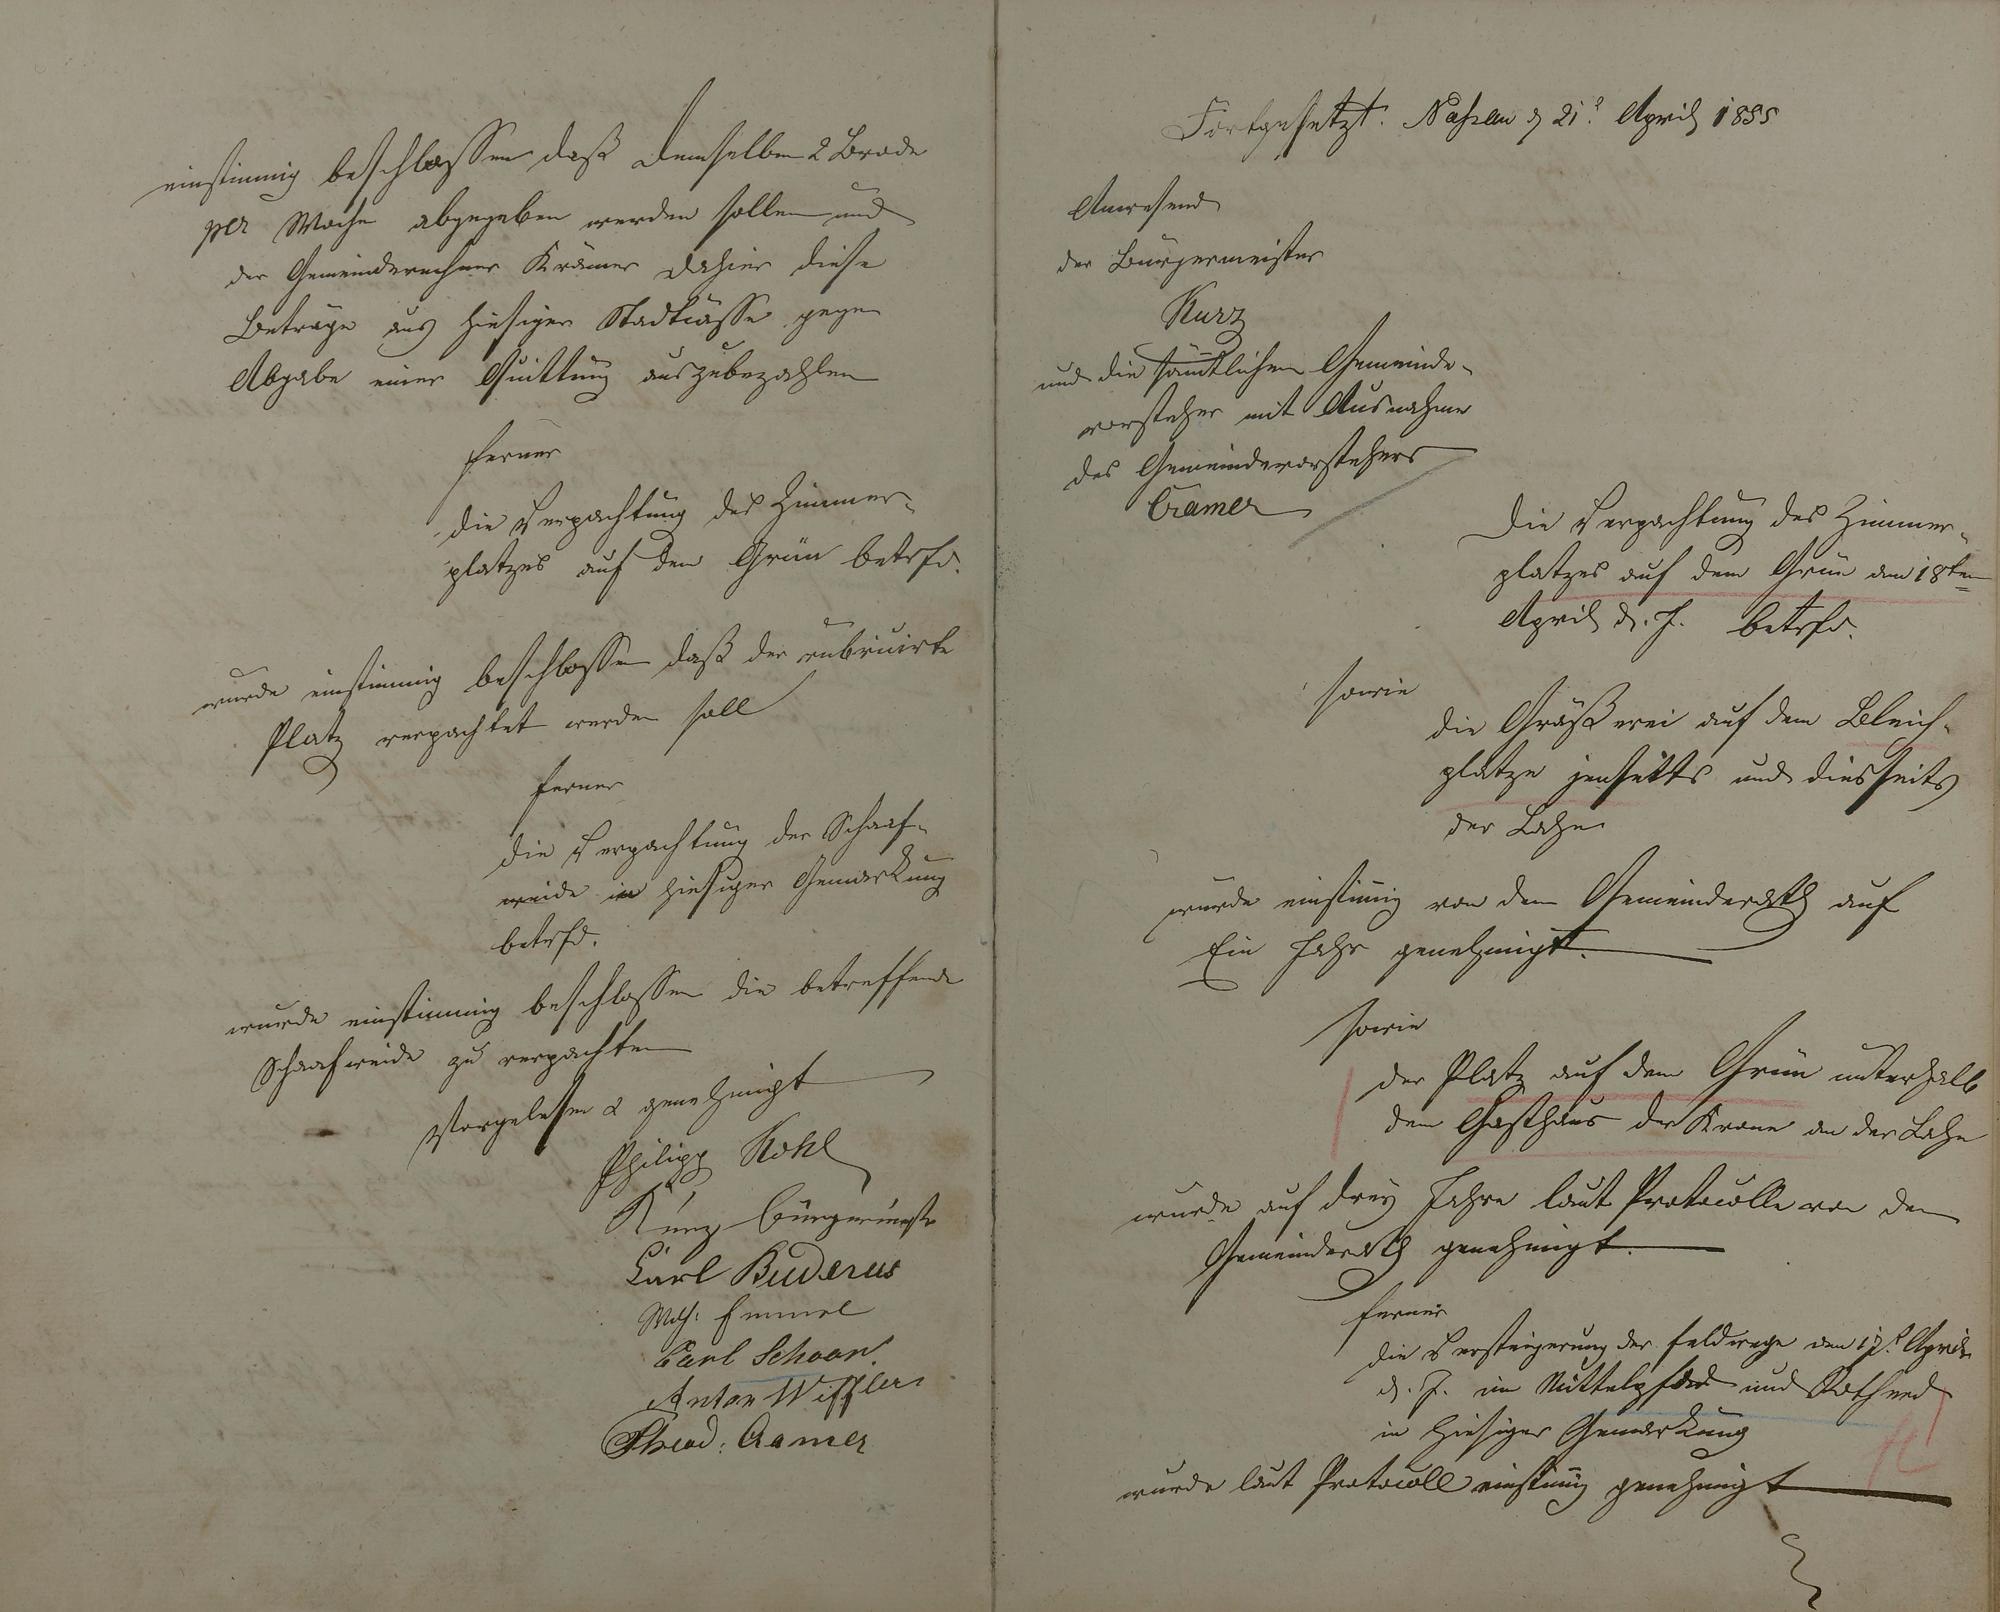 einstimmig beschlossen daß demselben 2 Brode
per Woche abgegeben werden sollen und
der Gemeinderechner Krämer dahier diese
Beträge aus hiesiger Stadtcasse gegen
Abgabe einer Quittung auszubezahlen
ferner
die Verpachtung des Zimmer-
platzes auf dem Grün betrfd.
wurde einstimmig beschlossen daß der rubricirte
Platz verpachtet werden soll
ferner
die Verpachtung der Schaaf-
weide in hiesiger Gemarkung
betrfd.
wurde einstimmig beschlossen die betreffende
Schaafweide zu verpachten
Vorgelesen & genehmigt
Philipp Kohl
Kurz Bürgermeister
Carl Buderus
Wilh: Emmel
Carl Schaar.
Anton
Theod: Cramer
Fortgesetzt. Nassau d 21t April 1855
Anwesend
der Bürgermeister
Kurz
und die sämtlichen Gemeinde-
vorsteher mit Ausnahme
des Gemeindevorstehers
Cramer
Die Verpachtung des Zimmer-
platzes auf dem Grün am 18ten
April d. J. betrfd.
sowie
die Gräßerei auf dem Bleich-
platze jenseitts und diesseits
der Lahn
wurde einstimig von dem Gemeinderath auf
Ein Jahr genehmigt.
sowie
der Platz auf dem Grün unterhalb
dem Gasthaus der Krone an der Lahn
wurde auf drey Jahre laut Protocolle von dem
Gemeinderath genehmigt.
ferner
die Versteigerung der Feldwege den 17t April
d. J. im Mittelpfad und
in hiesiger Gemarkung
wurde laut Protocoll einstimig genehmigt